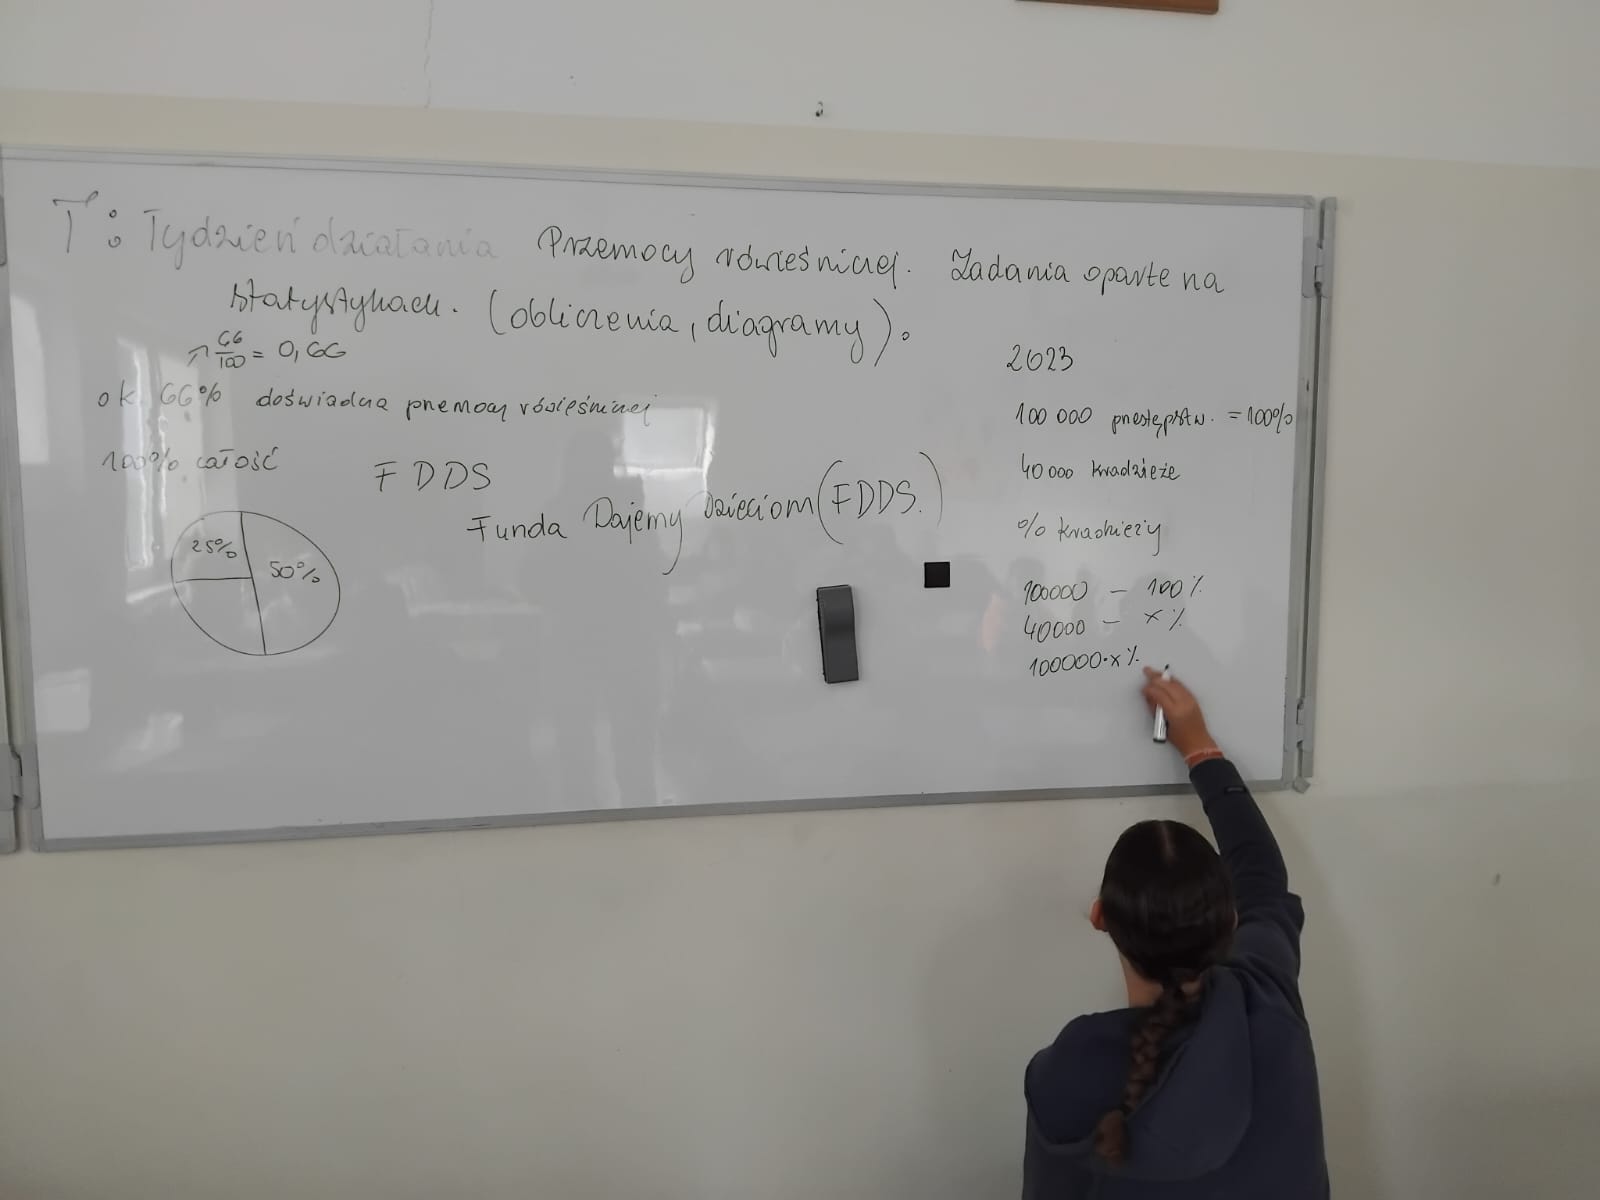 T: Tydzień działania Przemocy rówieśniczej. Zadania oparte na
statystykach. (obliczenia, diagramy).
66/100 = 0,66
ok. 66% doświadcza przemocy rówieśniczej
100% całość
FDDS
Funda Dajemy Dzieciom (FDDS.)
25%
50%
2023
100 000 przestępstw. = 100%
40 000 kradzieże
% kradzieży
100000 – 100%
40000 – x%
100000·x%